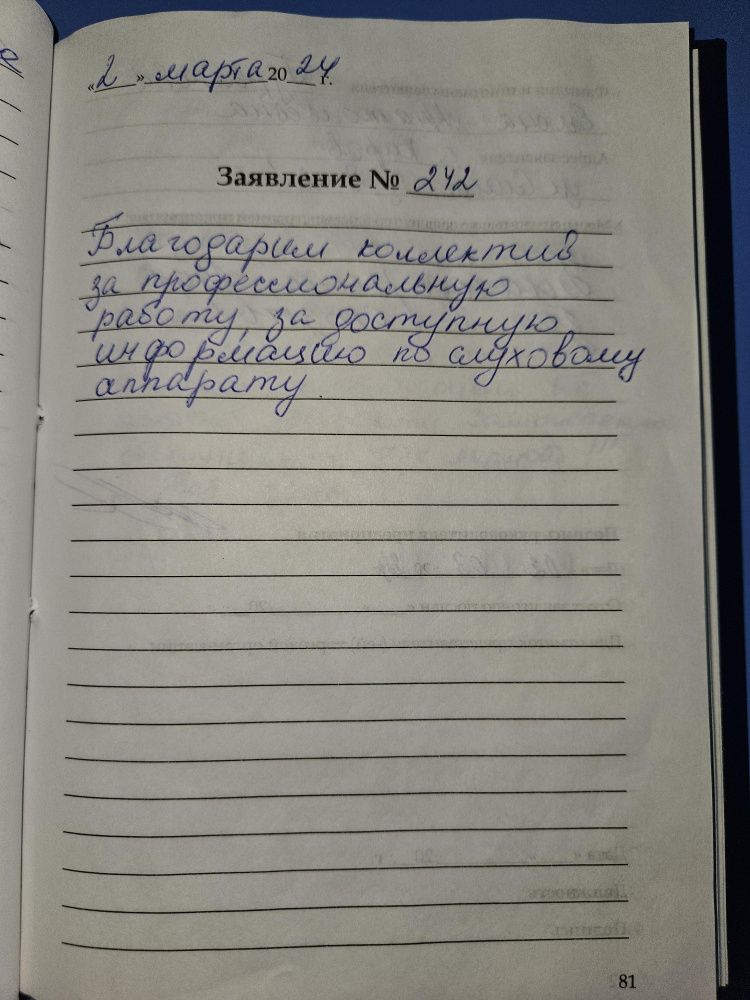 «2» марта 2024 г.
Заявление № 242
Благодарим коллектив
за профессиональную
работу, за доступную
информацию по слуховому
аппарату.
81